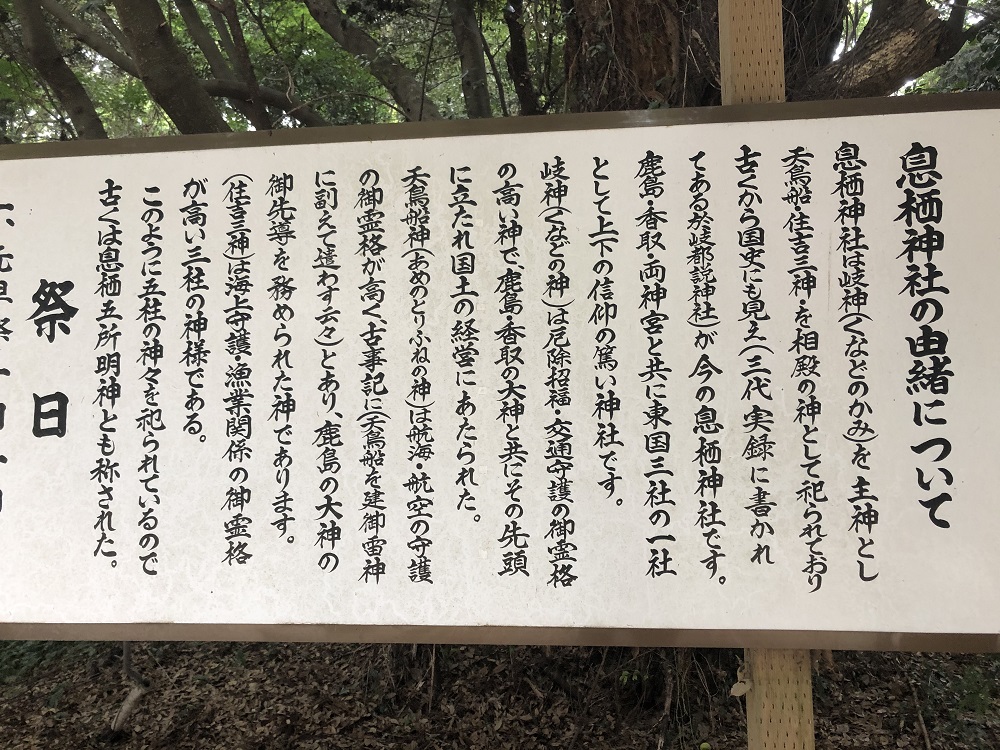 息栖神社の由緒について
息栖神社は岐神(くなどのかみ)を主神とし
天鳥船・住吉三神・を相殿の神として祀られており
古くから国史にも見え(三代実録に書かれ
てある於岐都説神社)が今の息栖神社です。
鹿島・香取・両神宮と共に東国三社の一社
として上下の信仰の篤い神社です。
岐神(くなどの神)は厄除招福・交通守護の御霊格
の高い神で、鹿島香取の大神と共にその先頭
に立たれ国土の経営にあたられた。
天鳥船神(あめのとりふねの神)は航海・航空の守護
の御霊格が高く、古事記に(天鳥船を建御雷神
に副えて遣わす云々)とあり、鹿島の大神の
御先導を務められた神であります。
(住吉三神)は海上守護・漁業関係の御霊格
が高い三柱の神様である。
このように五柱の神々を祀られているので
古くは息栖五所明神とも称された。
祭日